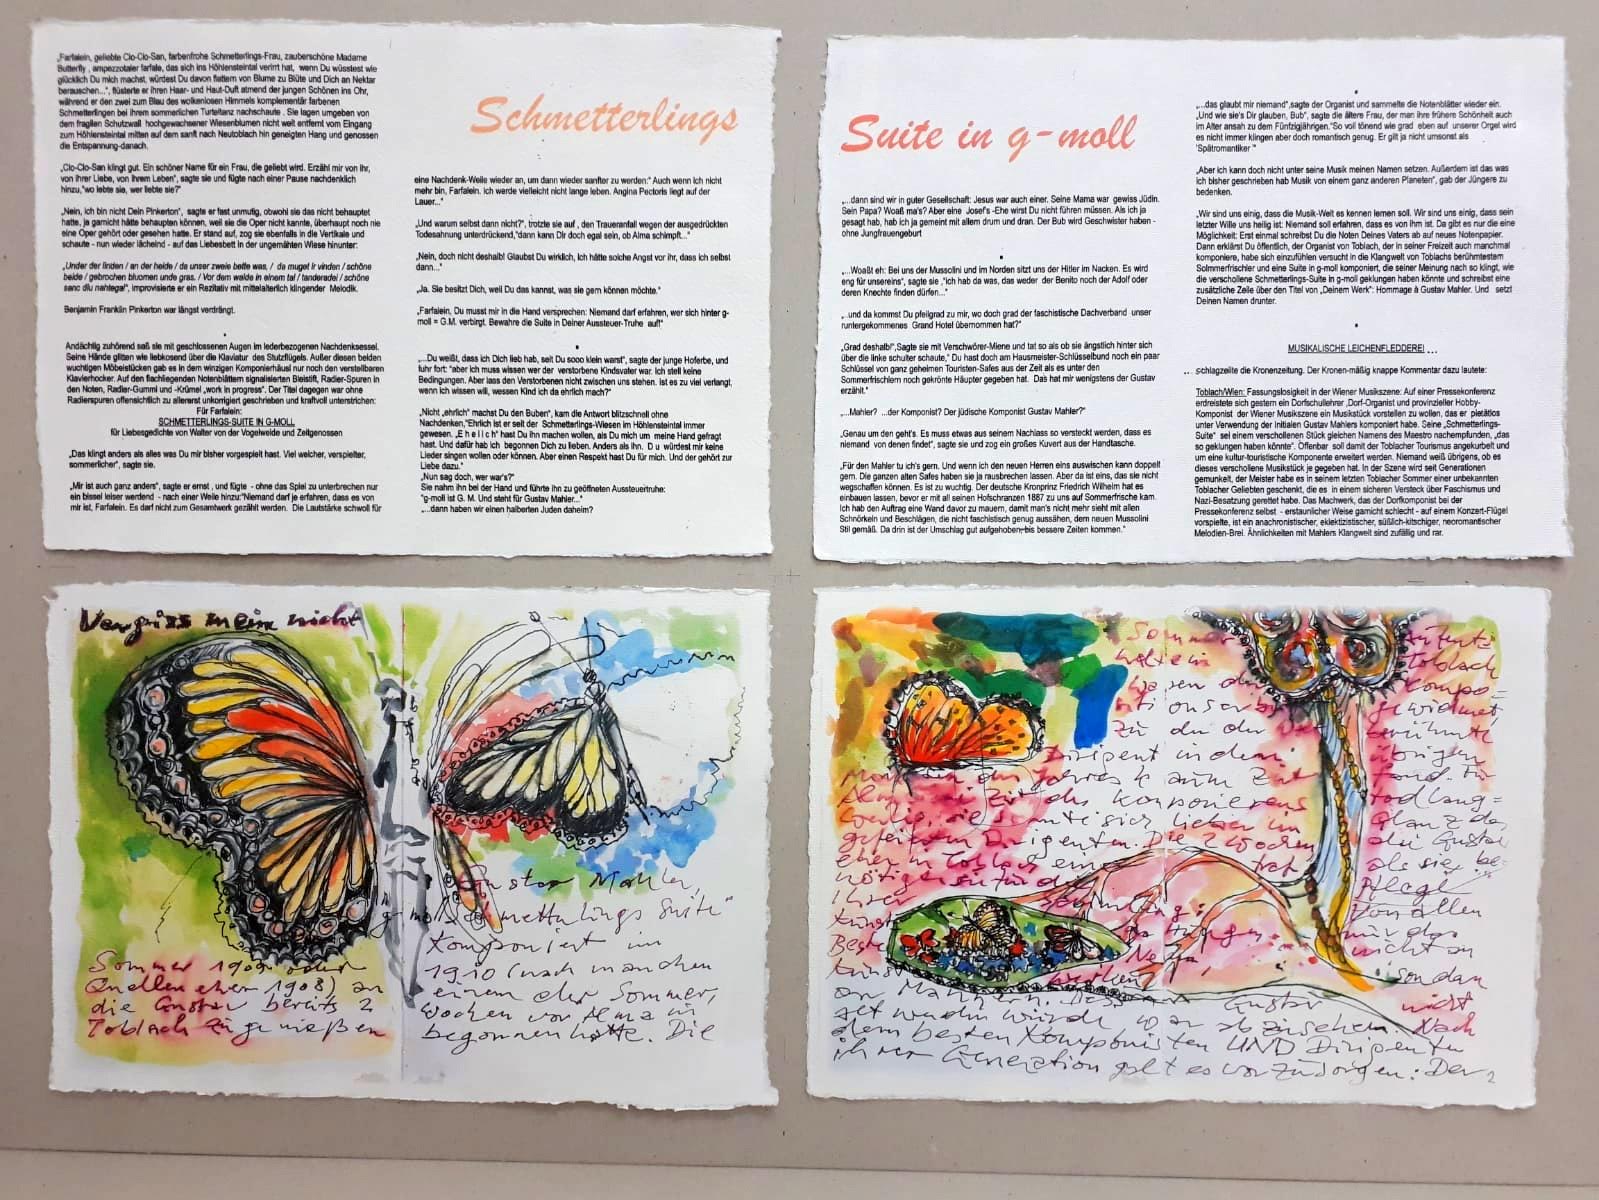 „Farfalein, geliebte Cio-Cio-San, farbenfrohe Schmetterlings-Frau, zauberschöne Madame
Butterfly , ampezzotaler farfale, das sich ins Höhlensteintal verirrt hat,  wenn Du wüsstest wie
glücklich Du mich machst, würdest Du davon flattern von Blume zu Blüte und Dich an Nektar
berauschen...", flüsterte er ihren Haar- und Haut-Duft atmend der jungen Schönen ins Ohr,
während er den zwei zum Blau des wolkenlosen Himmels komplementär farbenen
Schmetterlingen bei ihrem sommerlichen Turteltanz nachschaute . Sie lagen umgeben von
dem fragilen Schutzwall  hochgewachsener Wiesenblumen nicht weit entfernt vom Eingang
zum Höhlensteintal mitten auf dem sanft nach Neutoblach hin geneigten Hang und genossen
die Entspannung-danach.
„Cio-Cio-San klingt gut. Ein schöner Name für ein Frau, die geliebt wird. Erzähl mir von ihr,
von ihrer Liebe, von ihrem Leben", sagte sie und fügte nach einer Pause nachdenklich
hinzu,"wo lebte sie, wer liebte sie?"
„Nein, ich bin nicht Dein Pinkerton",  sagte er fast unmutig, obwohl sie das nicht behauptet
hatte, ja garnicht hätte behaupten können, weil sie die Oper nicht kannte, überhaupt noch nie
eine Oper gehört oder gesehen hatte. Er stand auf, zog sie ebenfalls in die Vertikale und
schaute - nun wieder lächelnd  - auf das Liebesbett in der ungemähten Wiese hinunter:
„Under der linden / an der heide / da unser zweie bette was, /  da muget ir vinden / schöne
beide / gebrochen bluomen unde gras. / Vor dem walde in einem tal / tanderadei / schöne
sanc diu nahtegal", improvisierte er ein Rezitativ mit mittelalterlich klingender  Melodik.
Benjamin Franklin Pinkerton war längst verdrängt.
Andächtig zuhörend saß sie mit geschlossenen Augen im lederbezogenen Nachdenksessel.
Seine Hände glitten wie liebkosend über die Klaviatur  des Stutzflügels. Außer diesen beiden
wuchtigen Möbelstücken gab es in dem winzigen Komponierhäusl nur noch den verstellbaren
Klavierhocker. Auf den flachliegenden Notenblättern signalisierten Bleistift, Radier-Spuren in
den Noten, Radier-Gummi und -Krümel „work in progress". Der Titel dagegen war ohne
Radierspuren offensichtlich zu allererst unkorrigiert geschrieben und kraftvoll unterstrichen:
Für Farfalein:
SCHMETTERLINGS-SUITE IN G-MOLL
für Liebesgedichte von Walter von der Vogelweide und Zeitgenossen
„Das klingt anders als alles was Du mir bisher vorgespielt hast. Viel welcher, verspielter,
sommerlicher", sagte sie.
„Mir ist auch ganz anders", sagte er ernst , und fügte  - ohne das Spiel zu unterbrechen nur
ein bissel leiser werdend  - nach einer Weile hinzu:"Niemand darf je erfahren, dass es von
mir ist, Farfalein. Es darf nicht zum Gesamtwerk gezählt werden.  Die Lautstärke schwoll für
Schmetterlings
eine Nachdenk-Weile wieder an, um dann wieder sanfter zu werden:" Auch wenn ich nicht
mehr bin, Farfalein. Ich werde vielleicht nicht lange leben. Angina Pectoris liegt auf der
Lauer..."
„Und warum selbst dann nicht?", trotzte sie auf , den Traueranfall wegen der ausgedrückten
Todesahnung unterdrückend,"dann kann Dir doch egal sein, ob Alma schimpft..."
„Nein, doch nicht deshalb! Glaubst Du wirklich, ich hätte solche Angst vor ihr, dass ich selbst
dann..."
„Ja. Sie besitzt Dich, weil Du das kannst, was sie gern können möchte."
„Farfalein, Du musst mir in die Hand versprechen: Niemand darf erfahren, wer sich hinter g-
moll = G.M. verbirgt. Bewahre die Suite in Deiner Aussteuer-Truhe  auf!"
„...Du weißt, dass ich Dich lieb hab, seit Du sooo klein warst", sagte der junge Hoferbe, und
fuhr fort: "aber ich muss wissen wer der  verstorbene Kindsvater war. Ich stell keine
Bedingungen. Aber lass den Verstorbenen nicht zwischen uns stehen. Ist es zu viel verlangt,
wenn ich wissen will, wessen Kind ich da ehrlich mach?"
„Nicht „ehrlich" machst Du den Buben", kam die Antwort blitzschnell ohne
Nachdenken,"Ehrlich ist er seit der  Schmetterlings-Wiesen im Höhlensteintal immer
gewesen. „E h e l i c h" hast Du ihn machen wollen, als Du mich um  meine Hand gefragt
hast. Und dafür hab ich  begonnen Dich zu lieben. Anders als ihn.  D u  würdest mir keine
Lieder singen wollen oder können. Aber einen Respekt hast Du für mich. Und der gehört zur
Liebe dazu."
„Nun sag doch, wer war's?"
Sie nahm ihn bei der Hand und führte ihn zu geöffneten Aussteuertruhe:
"g-moll ist G. M. Und steht für Gustav Mahler..."
„...dann haben wir einen halberten Juden daheim?
Suite in g-moll
„...dann sind wir in guter Gesellschaft: Jesus war auch einer. Seine Mama war  gewiss Jüdin.
Sein Papa? Woaß ma's? Aber eine  Josef's -Ehe wirst Du nicht führen müssen. Als ich ja
gesagt hab, hab ich ja gemeint mit allem drum und dran. Der Bub wird Geschwister haben -
ohne Jungfrauengeburt
„...Woaßt eh: Bei uns der Mussolini und im Norden sitzt uns der Hitler im Nacken. Es wird
eng für unsereins", sagte sie, "ich hab da was, das weder  der Benito noch der Adolf oder
deren Knechte finden dürfen..."
„...und da kommst Du pfeilgrad zu mir, wo doch grad der faschistische Dachverband  unser
runtergekommenes  Grand Hotel übernommen hat?"
„Grad deshalb!",Sagte sie mit Verschwörer-Miene und tat so als ob sie ängstlich hinter sich
über die linke schulter schaute," Du hast doch am Hausmeister-Schlüsselbund noch ein paar
Schlüssel von ganz geheimen Touristen-Safes aus der Zeit als es unter den
Sommerfrischlern noch gekrönte Häupter gegeben hat.  Das hat mir wenigstens der Gustav
erzählt."
„...Mahler?  ...der Komponist? Der jüdische Komponist Gustav Mahler?"
„Genau um den geht's. Es muss etwas aus seinem Nachlass so versteckt werden, dass es
niemand  von denen findet", sagte sie und zog ein großes Kuvert aus der Handtasche.
„Für den Mahler tu ich's gern. Und wenn ich den neuen Herren eins auswischen kann doppelt
gern. Die ganzen alten Safes haben sie ja rausbrechen lassen. Aber da ist eins, das sie nicht
wegschaffen können. Es ist zu wuchtig. Der deutsche Kronprinz Friedrich Wilhelm hat es
einbauen lassen, bevor er mit all seinen Hofschranzen 1887 zu uns auf Sommerfrische kam.
Ich hab den Auftrag eine Wand davor zu mauern, damit man's nicht mehr sieht mit allen
Schnörkeln und Beschlägen, die nicht faschistisch genug aussähen, dem neuen Mussolini
Stil gemäß. Da drin ist der Umschlag gut aufgehoben,bis bessere Zeiten kommen."
„...das glaubt mir niemand",sagte der Organist und sammelte die Notenblätter wieder ein.
„Und wie sie's Dir glauben, Bub", sagte die ältere Frau, der man ihre frühere Schönheit auch
im Alter ansah zu dem Fünfzigjährigen."So voll tönend wie grad  eben auf  unserer Orgel wird
es nicht immer klingen aber doch romantisch genug. Er gilt ja nicht umsonst als
'Spätromantiker '"
„Aber ich kann doch nicht unter seine Musik meinen Namen setzen. Außerdem ist das was
ich bisher geschrieben hab Musik von einem ganz anderen Planeten", gab der Jüngere zu
bedenken.
„Wir sind uns einig, dass die Musik-Welt es kennen lernen soll. Wir sind uns einig, dass sein
letzter Wille uns heilig ist: Niemand soll erfahren, dass es von ihm ist.  Da gibt es nur die eine
Möglichkeit: Erst einmal schreibst Du die Noten Deines Vaters ab auf neues Notenpapier.
Dann erklärst Du öffentlich, der Organist von Toblach, der in seiner Freizeit auch manchmal
komponiere, habe sich einzufühlen versucht in die Klangwelt von Toblachs berühmtestem
Solmmerfrischler und eine Suite in g-moll komponiert, die seiner Meinung nach so klingt, wie
die verschollene Schmetterlings-Suite in g-moll geklungen haben könnte und schreibst eine
zusätzliche Zeile über den Titel von „Deinem Werk": Hommage à Gustav Mahler. Und   setzt
Deinen Namen drunter.
MUSIKALISCHE LEICHENFLEDDEREI ...
... schlagzeilte die Kronenzeitung. Der Kronen-mäßig knappe Kommentar dazu lautete:
Toblach/Wien: Fassungslosigkeit in der Wiener Musikszene: Auf einer Pressekonferenz
erdreistete sich gestern ein Dorfschullehrer ,Dorf-Organist und provinzieller Hobby-
Komponist  der Wiener Musikszene ein Musikstück vorstellen zu wollen, das er  pietätlos
unter Verwendung der Initialen Gustav Mahlers komponiert habe. Seine „Schmetterlings-
Suite"  sei einem verschollenen Stück gleichen Namens des Maestro nachempfunden, „das
so geklungen haben könnte". Offenbar  soll damit der Toblacher Tourismus angekurbelt und
um eine kultur-touristische Komponente erweitert werden. Niemand weiß übrigens, ob es
dieses verschollene Musikstück je gegeben hat. In der Szene wird seit Generationen
gemunkelt, der Meister habe es in seinem letzten Toblacher Sommer einer unbekannten
Toblacher Geliebten geschenkt, die es  in einem sicheren Versteck über Faschismus und
Nazi-Besatzung gerettet habe. Das Machwerk, das der Dorfkomponist bei der
Pressekonferenz selbst  - erstaunlicher Weise garnicht schlecht - auf einem Konzert-Flügel
vorspielte, ist ein anachronistischer, eklektizistischer, süßlich-kitschiger, neoromantischer
Melodien-Brei. Ähnlichkeiten mit Mahlers Klangwelt sind zufällig und rar.
Vergiss mein nicht
Gustav Mahler,
g-moll Schmetterlings Suite"
Komponiert im
Sommer 1909 oder 1910 (nach manchen
Quellen eher 1908) in einem der Sommer,
die Gustav bereits 2 Wochen vor Alma in
Toblach zu genießen begonnen hatte. Die
Sommer
Toblach
Kompo=
gewidmet,
zu der der berühmte
Dirigent in den übrigen
Monaten des Jahres
des Komponierens
gefeierten Dirigenten. Die 2 Wochen
Von allen
an Männern.
dem besten Komponisten UND Dirigenten
ihrer Generation galt es vorzusorgen: Der